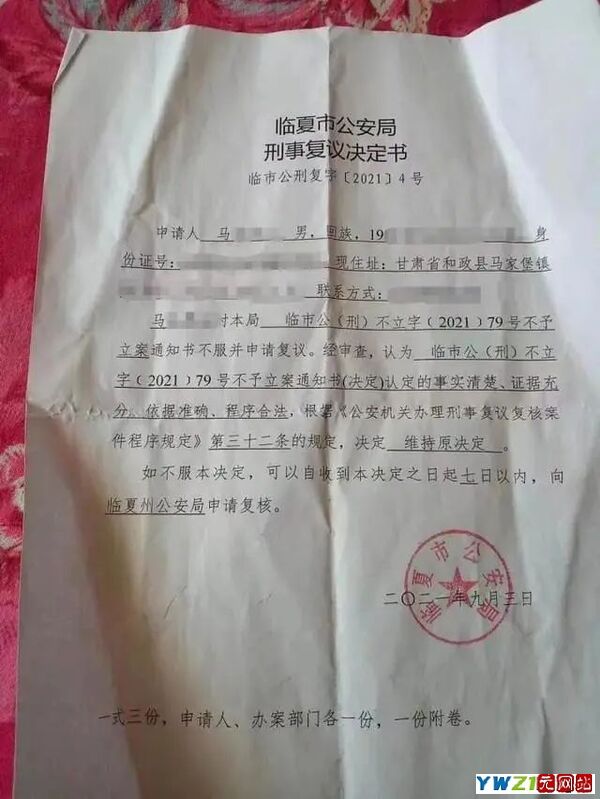 临夏市公安局
刑事复议决定书
临市公刑复字〔2021〕4号
申请人 马 男，回族，19 身
份证号： 现住址：甘肃省和政县马家堡镇
联系方式：
马 对本局 临市公（刑）不立字（2021）79号不予
立案通知书不服并申请复议。经审查，认为 临市公（刑）不立
字（2021）79号不予立案通知书(决定)认定的事实清楚、证据充
分、依据准确、程序合法，根据《公安机关办理刑事复议复核案
件程序规定》第三十二条的规定，决定 维持原决定 。
如不服本决定，可以自收到本决定之日起七日以内，向
临夏州公安局申请复核。
临夏市公安局
二〇二一年九月三日
一式三份，申请人、办案部门各一份，一份附卷。
YWZ1元网站